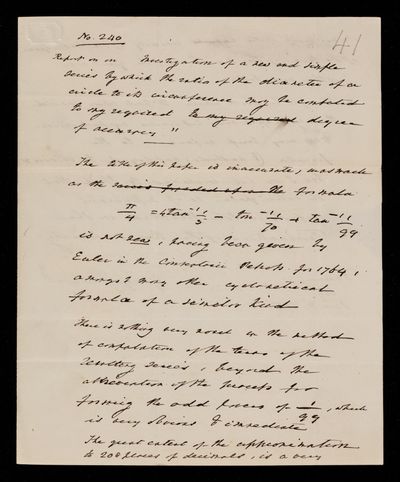 No. 240
41
Report on an Investigation of a new and simple
series by which the ratio of the diameter of a
circle to its circumference may be computed
to any required to any required degree
of accuracy "
The title of this paper is inaccurate, inasmuch
as the series founded upon the formula
π/4 = 4 tan⁻¹ 1/5 − tan⁻¹ 1/70 + tan⁻¹ 1/99
is not new, having been given by
Euler in the Commentaria Petrop. for 1764,
amongst many other cyclometrical
formulæ of a similar kind
There is nothing very novel in the method
of computation of the terms of the
resulting series, beyond the
abbreviation of the process for
forming the odd powers of 1/99, which
is very obvious & immediate
The great extent of the approximation
to 200 places of decimals, is a very